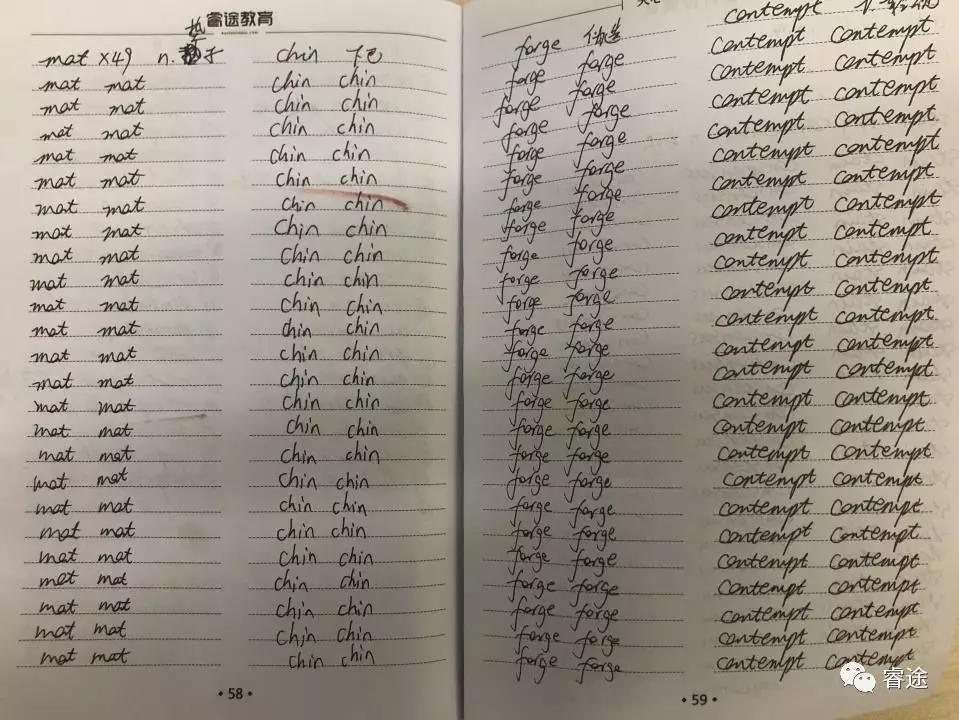 睿途教育
mat ×49 n. 垫子
mat mat
mat mat
mat mat
mat mat
mat mat
mat mat
mat mat
mat mat
mat mat
mat mat
mat mat
mat mat
mat mat
mat mat
mat mat
mat mat
mat mat
mat mat
mat mat
mat mat
mat mat
mat mat
mat mat
mat mat
chin 下巴
chin chin
chin chin
chin chin
chin chin
chin chin
chin chin
chin chin
chin chin
chin chin
chin chin
chin chin
chin chin
chin chin
chin chin
chin chin
chin chin
chin chin
chin chin
chin chin
chin chin
chin chin
chin chin
chin chin
chin chin
·58·
forge 伪造
forge forge
forge forge
forge forge
forge forge
forge forge
forge forge
forge forge
forge forge
forge forge
forge forge
forge forge
forge forge
forge forge
forge forge
forge forge
forge forge
forge forge
forge forge
forge forge
forge forge
forge forge
forge forge
forge forge
forge forge
contempt
contempt contempt
contempt contempt
contempt contempt
contempt contempt
contempt contempt
contempt contempt
contempt contempt
contempt contempt
contempt contempt
contempt contempt
contempt contempt
contempt contempt
contempt contempt
contempt contempt
contempt contempt
contempt contempt
contempt contempt
contempt contempt
contempt contempt
contempt contempt
contempt contempt
contempt contempt
contempt contempt
contempt contempt
·59·
睿途